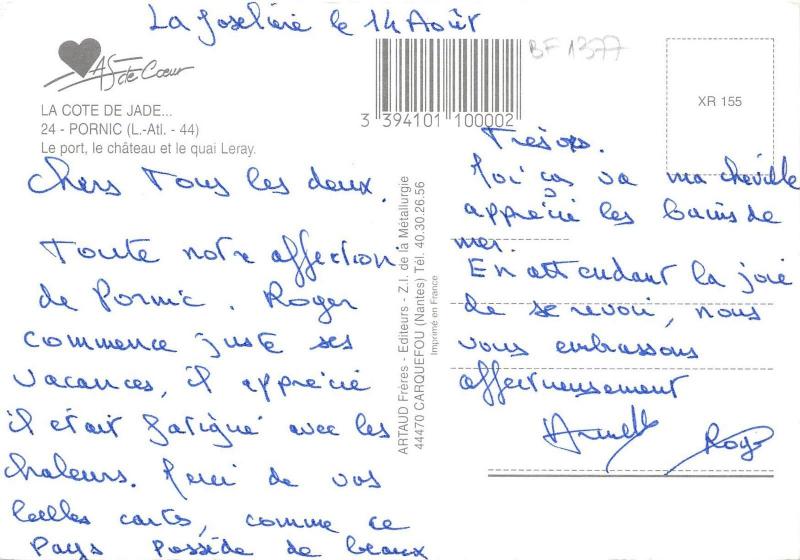 La Joselière le 14 Août
BF 1377
As de Cœur
3 394101 100002
XR 155
LA COTE DE JADE...
24 - PORNIC (L.-Atl. - 44)
Le port, le château et le quai Leray.
Chers Tous les deux.
Toute notre affection
de Pornic. Roger
commence juste ses
vacances, il apprécie
il était fatigué avec les
chaleurs. Merci de vos
belles cartes, comme ce
Pays Possède de beaux
ARTAUD Frères - Editeurs - Z.I. de la Métallurgie
44470 CARQUEFOU (Nantes) Tél. 40.30.26.56
Imprimé en France
Trésors.
Moi ça va ma cheville
apprécie les bains de
mer.
En attendant la joie
de se revoir, nous
vous embrassons
affectueusement
Armelle Roger